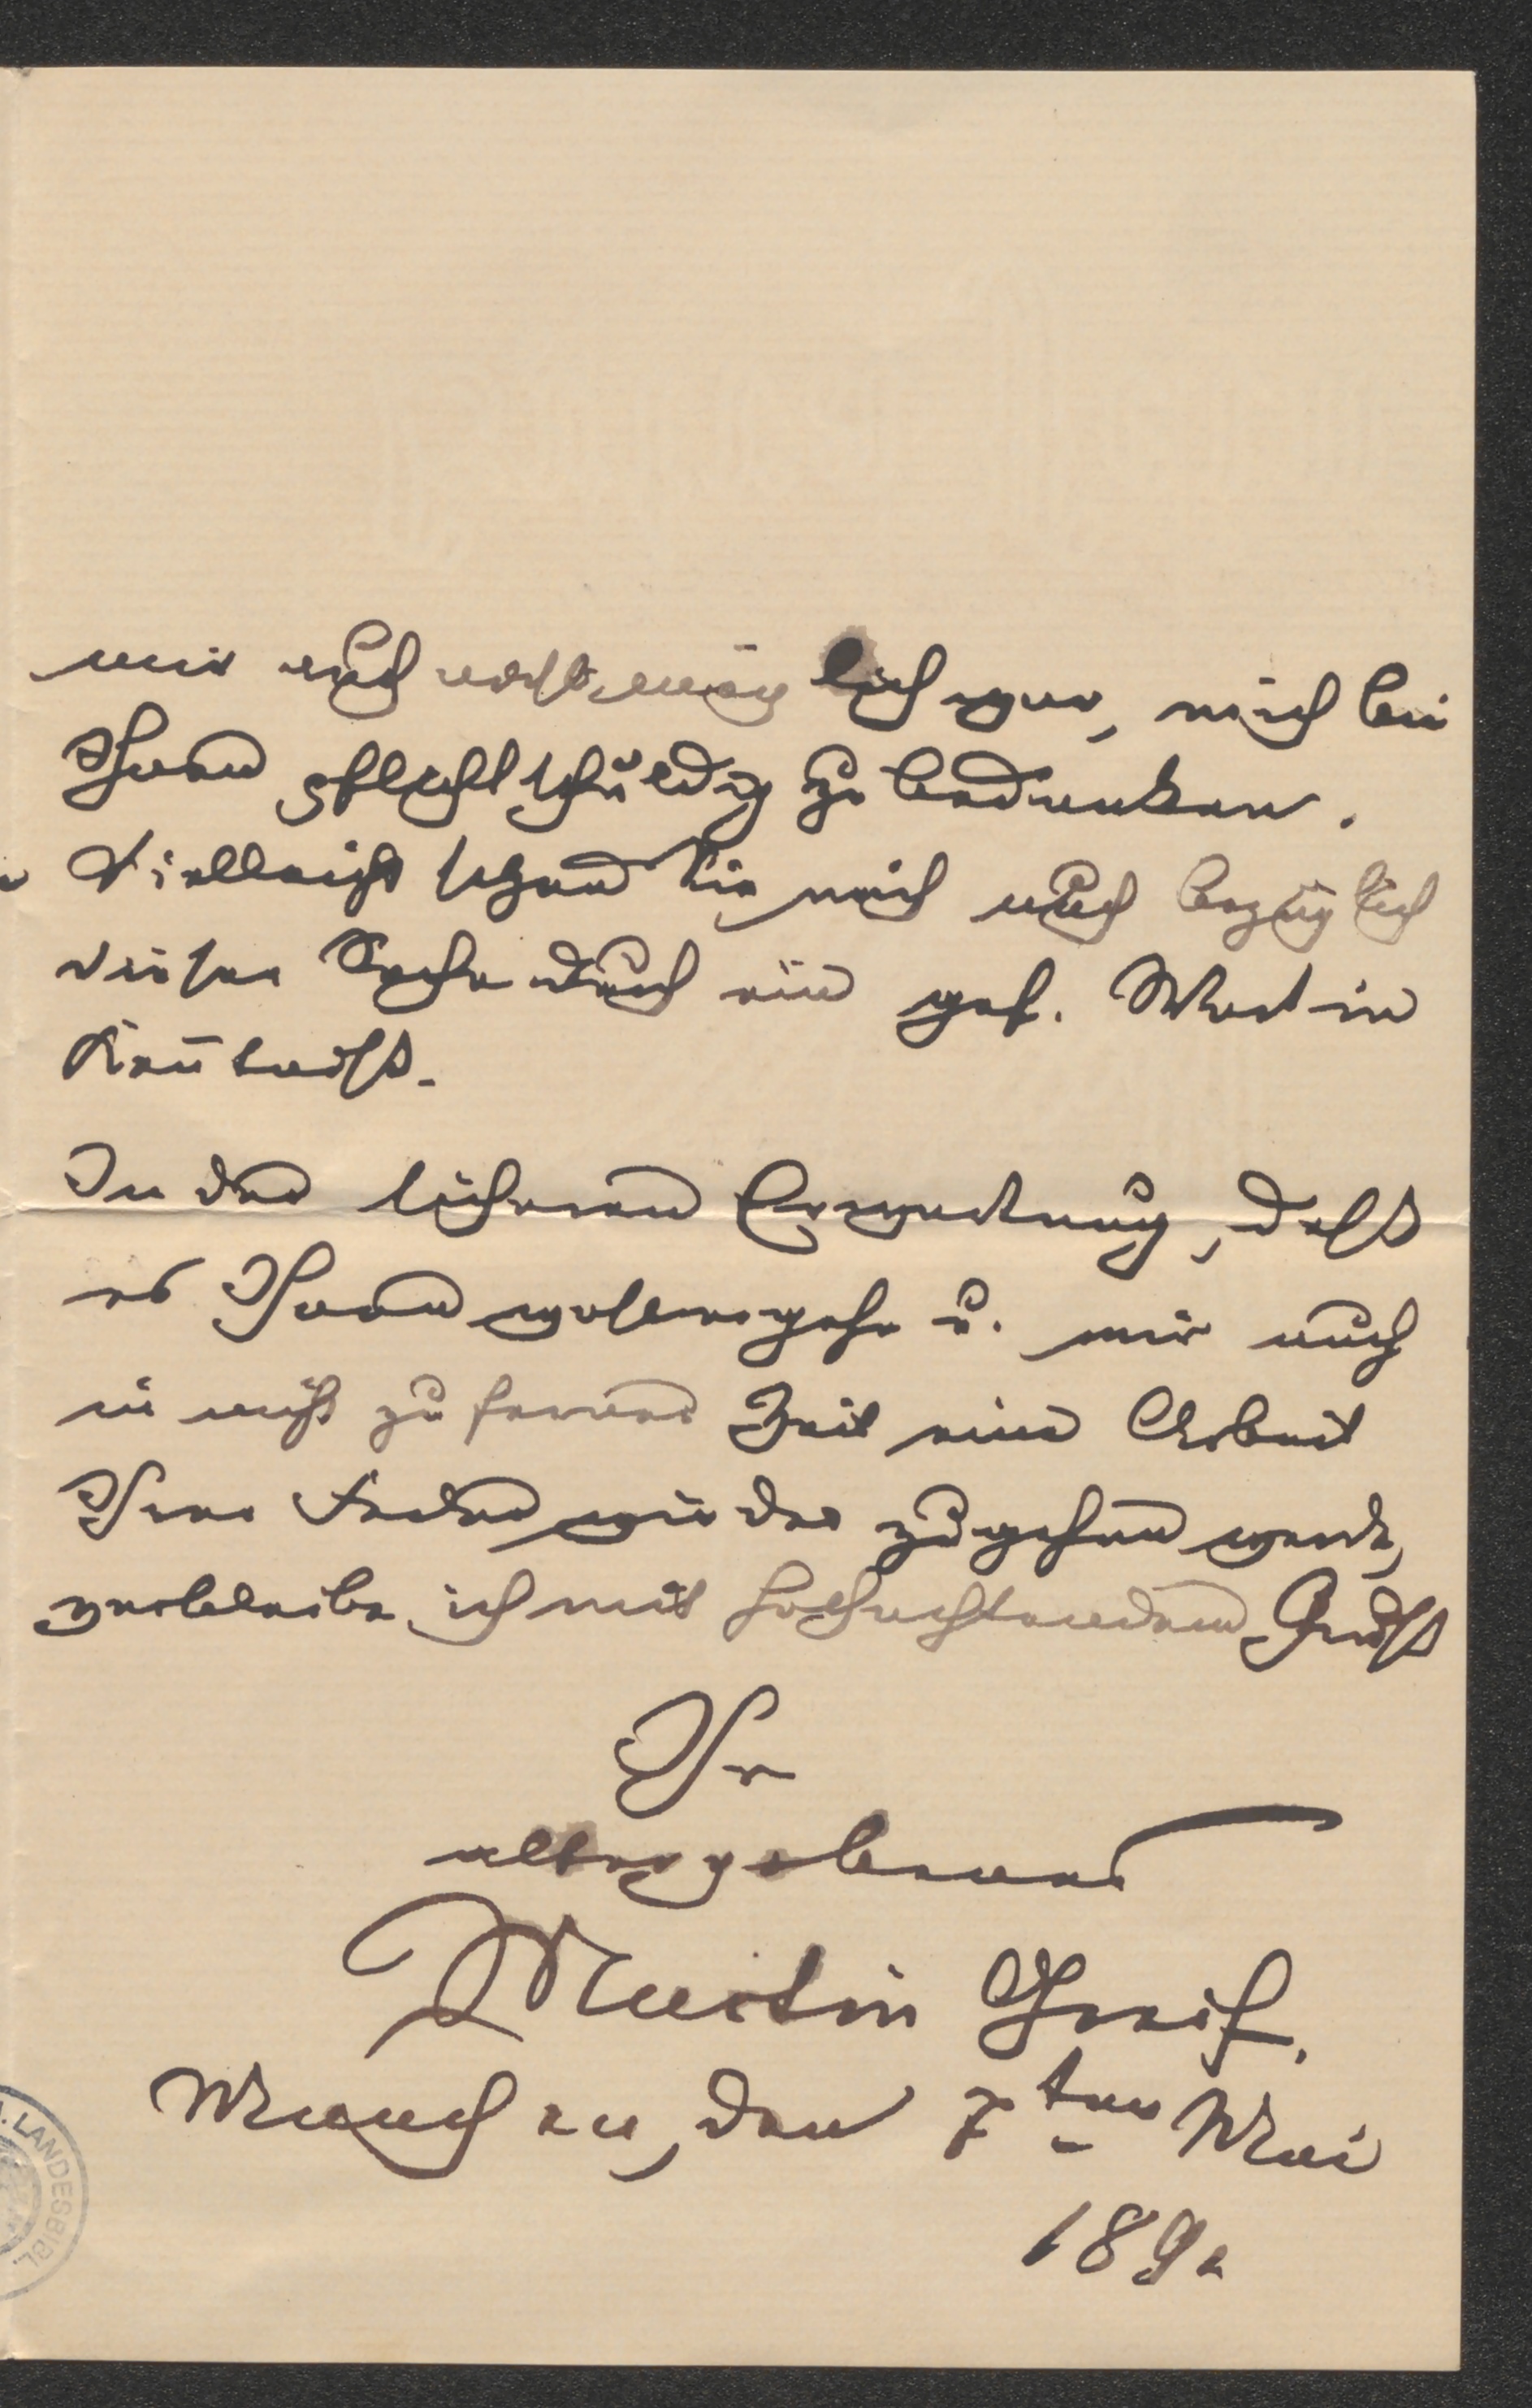 mir auch nicht möglich war, mich bei
Ihnen pflichtschuldig zu bedanken.
Vielleicht setzen Sie mich auch bezüglich
dieser Sache durch ein gef. Wort in
Kenntniß.
In der sicheren Erwartung, daß
es Ihnen wohlergehe u. mir auch
in nicht zu ferner Zeit eine Arbeit
Ihrer Feder wieder zugehen werde,
verbleibe ich mit hochachtendem Gruß
Ihr
allergebener
Martin Greif.
München, den 7ten Mai
189
LANDESBIBL.